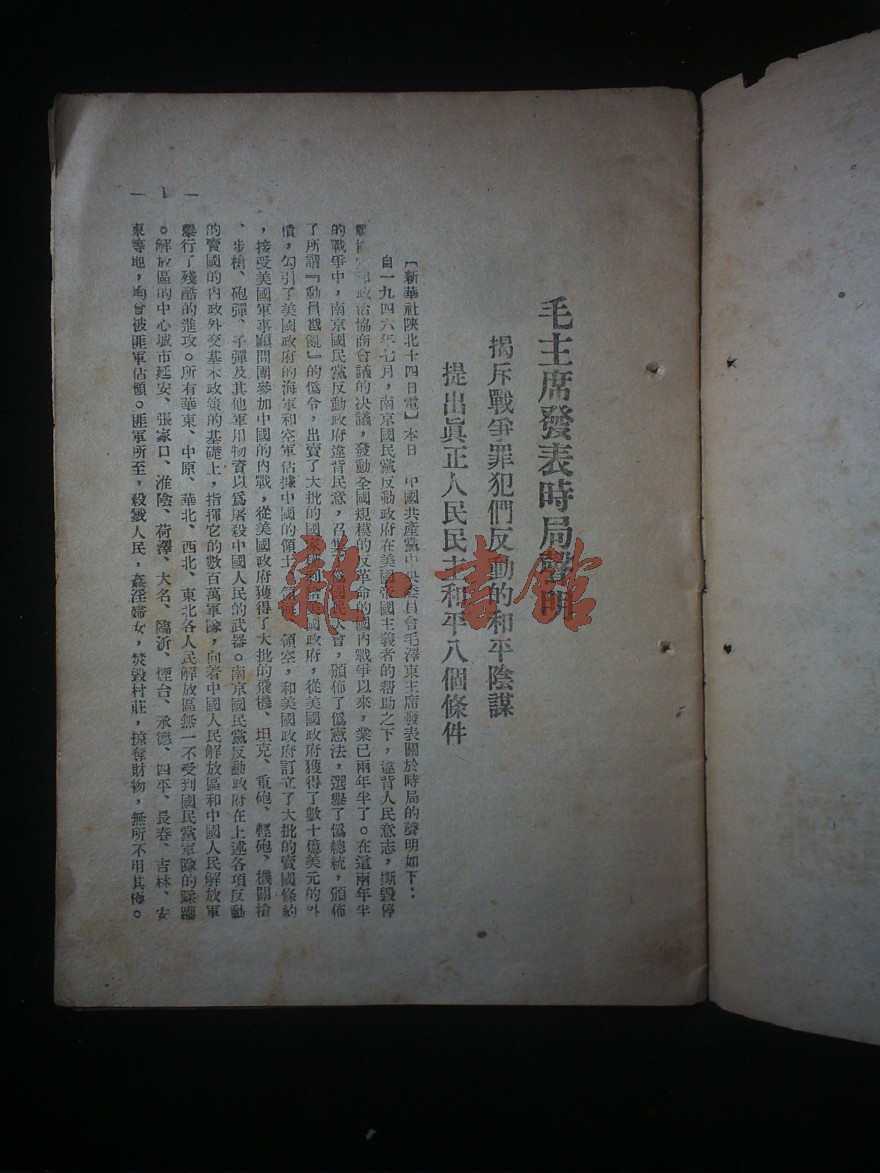 毛主席發表時局聲明
揭斥戰爭罪犯們反動的和平陰謀
提出眞正人民民主和平八個條件
【新華社陝北十四日電】本日 中國共產黨中央委員會毛澤東主席發表關於時局的聲明如下：
自一九四六年七月，南京國民黨反動政府在美國帝國主義者的帮助之下，違背人民意志，撕毀停
政治協商會議的决議，發動全國規模的反革命的國內戰爭以來，業已兩年半了。在這兩年半
的戰爭中，南京國民黨反動政府違背民意，召集了僞國民大會，頒佈了僞憲法，選舉了僞總統，頒佈
了所謂『動員戡亂』的僞令，出賣了大批的國家權利給美國政府，從美國政府獲得了數十億美元的外
債，勾引了美國政府的海軍和空軍佔據中國的領土、領海、領空，和美國政府訂立了大批的賣國條約
，接受美國軍事顧問團參加中國的內戰，從美國政府獲得了大批的飛機、坦克、重砲、輕砲、機關槍
、步槍、砲彈、子彈及其他軍用物資以爲屠殺中國人民的武器。南京國民黨反動政府在上述各項反動
的賣國的內政外交基本政策的基礎上，指揮它的數百萬軍隊，向着中國人民解放區和中國人民解放軍
舉行了殘酷的進攻。所有華東、中原、華北、西北、東北各人民解放區無一不受到國民黨軍隊的蹂躪
。解放區的中心城市延安、張家口、淮陰、荷澤、大名、臨沂、煙台、承德、四平、長春、吉林、安
東等地，均曾被匪軍佔領。匪軍所至，殺戮人民，姦淫婦女，焚毀村莊，掠奪財物，無所不用其極。
— 1 —
雜·書館